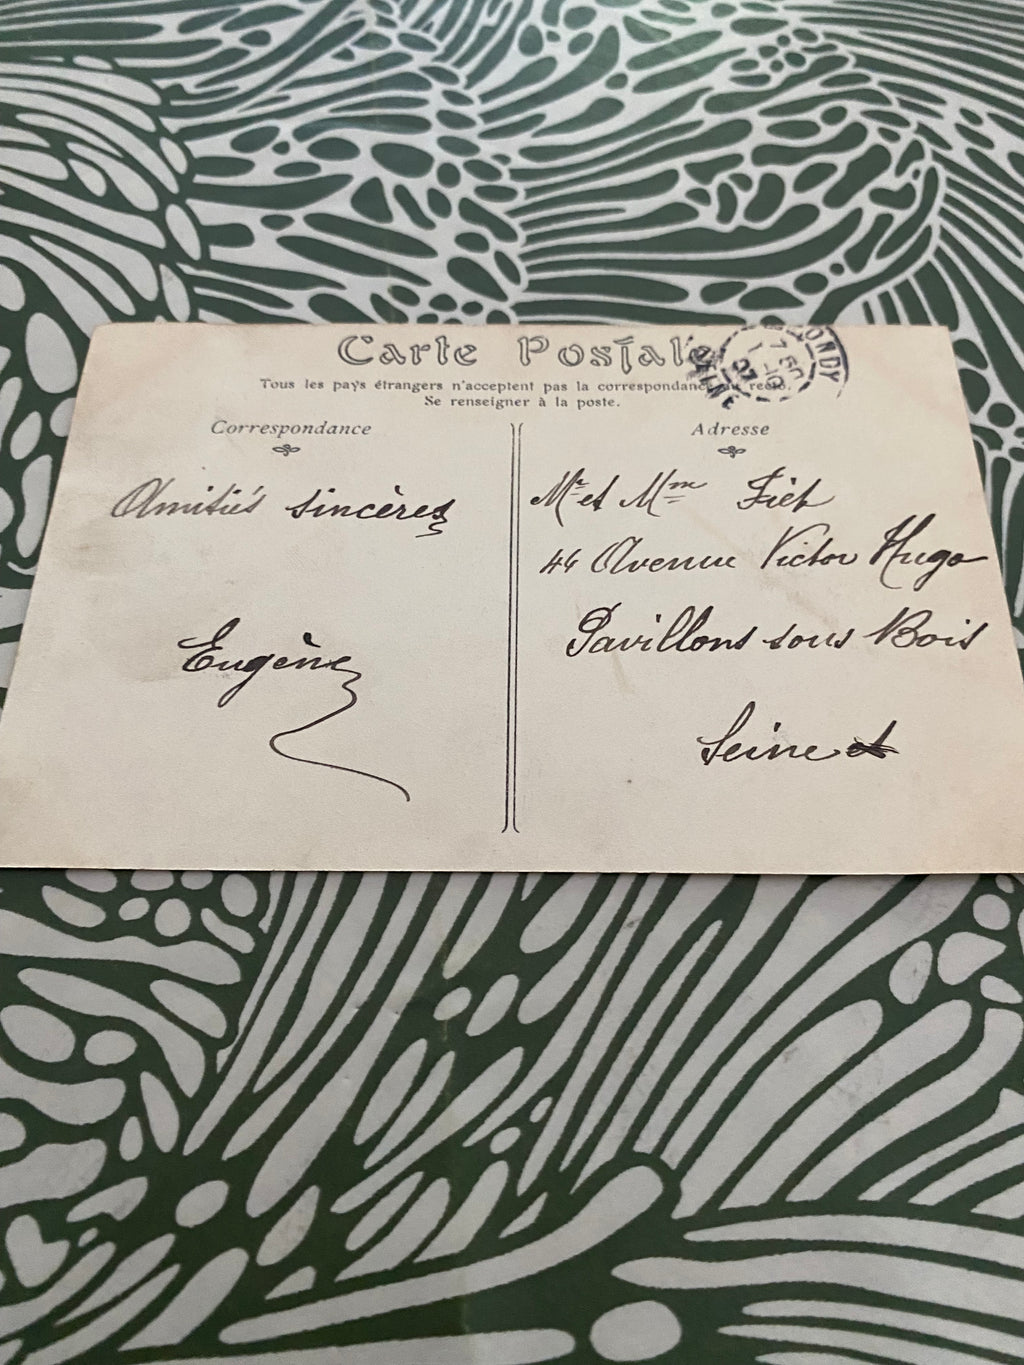 Carte Postale
Tous les pays étrangers n'acceptent pas la correspondance au recto.
Se renseigner à la poste.
Correspondance
Amitiés sincères
Eugène
Adresse
Mr et Mme
44 Avenue Victor Hugo
Pavillons sous Bois
Seine
BONDY
SEINE